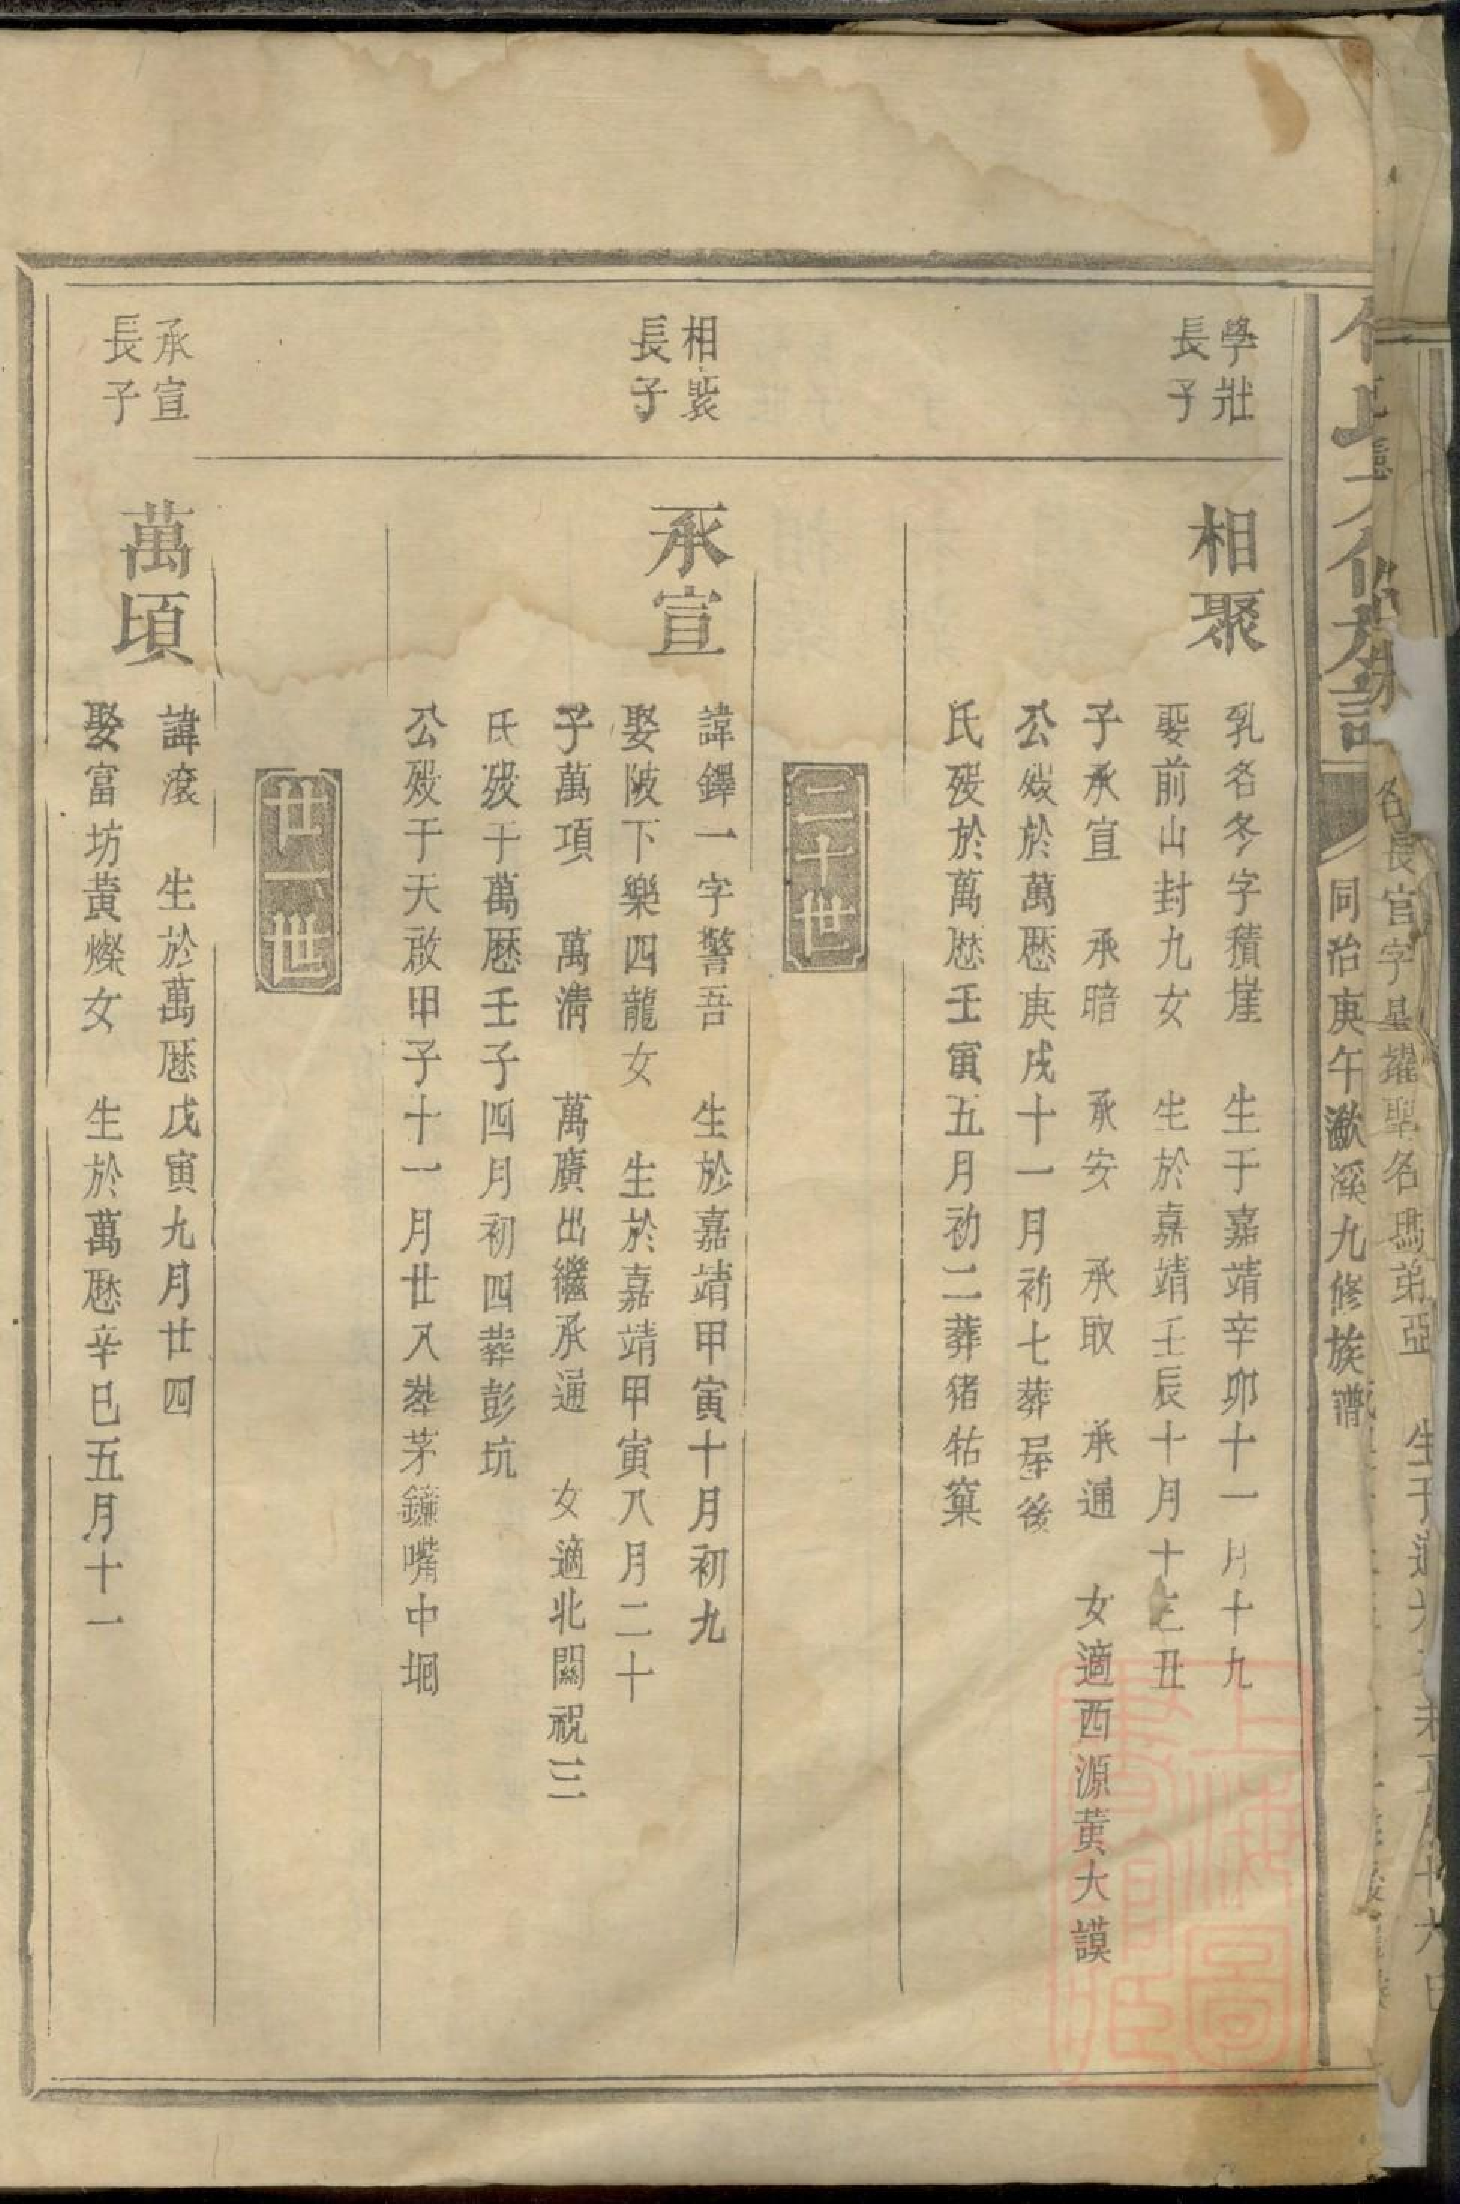 同治庚午漖溪九修族譜
學壯
長子
相聚
乳名冬字積崖　生于嘉靖辛卯十一月十九
娶前山封九女　生於嘉靖壬辰十月十二丑
子承宣　承暗　承安　承取　承通　女適西源黄大謨
公歿於萬厯庚戌十一月初七葬屋後
氏歿於萬厯壬寅五月初二葬猪牯窠
二十世
相聚
長子
承宣
諱鐸一字警吾　生於嘉靖甲寅十月初九
娶陂下樂四龍女　生於嘉靖甲寅八月二十
子萬項　萬清　萬廣出繼承通　女適北關祝三
氏歿于萬厯壬子四月初四葬彭坑
公歿于天啟甲子十一月廿八葬茅鐮嘴中堌
廿一世
承宣
長子
萬頃
諱滾　生於萬厯戊寅九月廿四
娶富坊黄燦女　生於萬厯辛巳五月十一
上海圖
書館藏